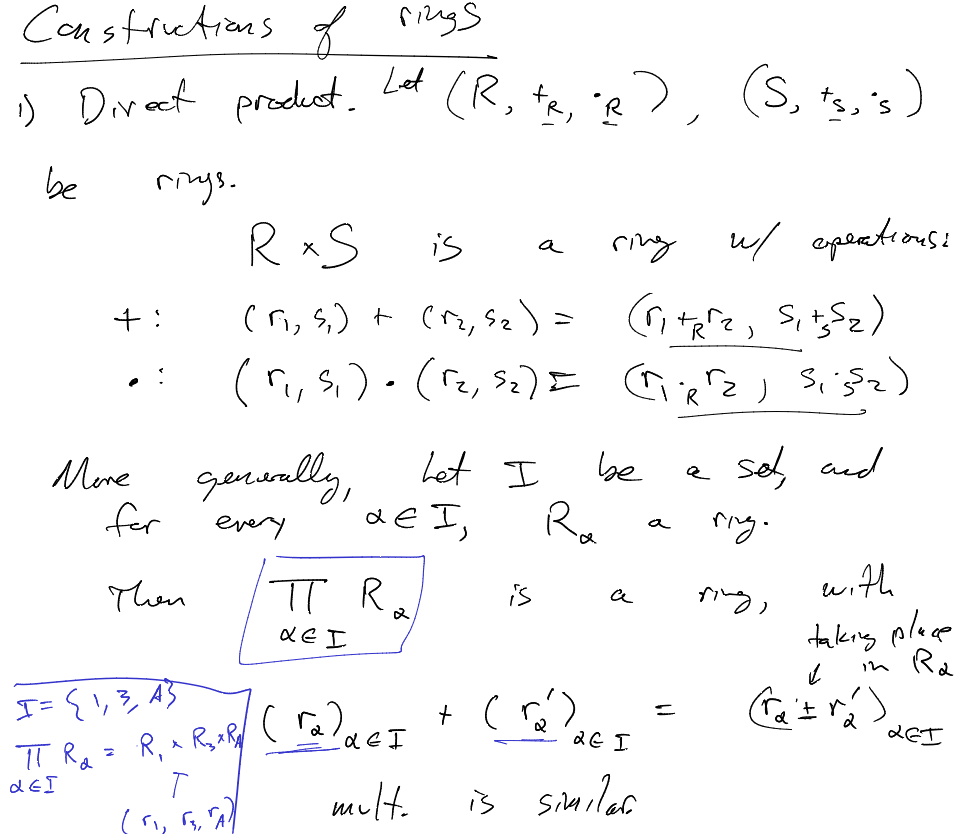 Constructions of rings
1) Direct product. Let (R, +_R, ·_R), (S, +_S, ·_S)
be rings.
R × S is a ring w/ operations:
+: (r₁, s₁) + (r₂, s₂) = (r₁ +_R r₂, s₁ +_S s₂)
•: (r₁, s₁) • (r₂, s₂) = (r₁ ·_R r₂, s₁ ·_S s₂)
More generally, Let I be a set, and
for every α ∈ I, R_α a ring.
Then ∏_{α∈I} R_α is a ring, with
taking place
in R_α
(r_α)_{α∈I} + (r_α')_{α∈I} = (r_α + r_α')_{α∈I}
mult. is similar.
I = {1, 3, A}
∏_{α∈I} R_α = R₁ × R₃ × R_A
(r₁, r₃, r_A)